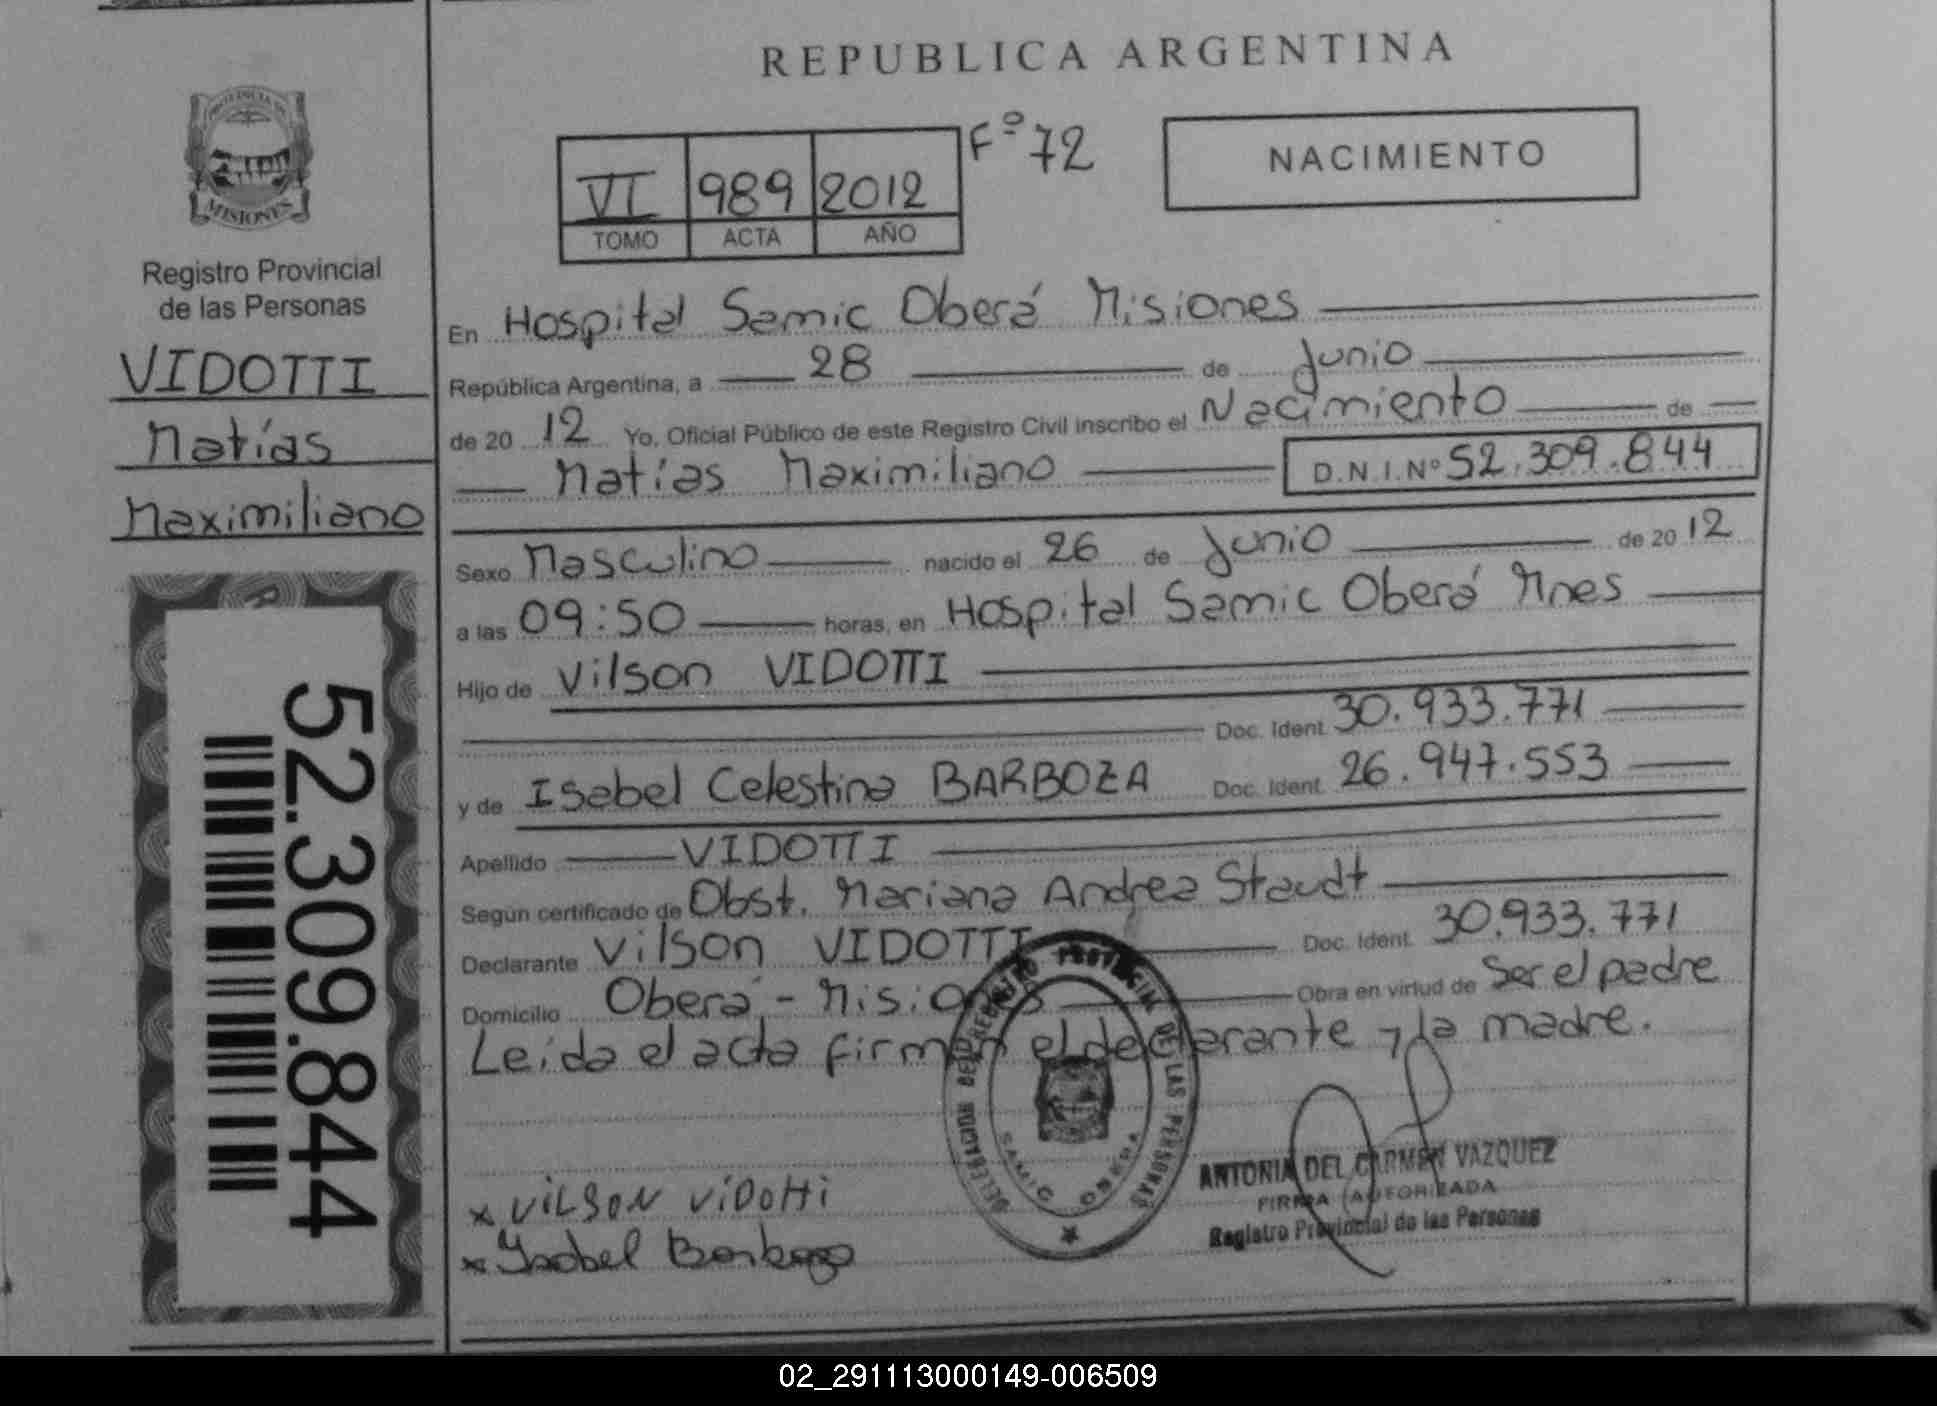 REPUBLICA ARGENTINA
PROVINCIA DE
MISIONES
Registro Provincial
de las Personas
VIDOTTI
Matías
Maximiliano
52.309.844
VI 989 2012 Fº 72
TOMO ACTA AÑO
NACIMIENTO
En Hospital Samic Oberá Misiones
República Argentina, a 28 de Junio
de 20 12 Yo, Oficial Público de este Registro Civil inscribo el Nacimiento de
Matías Maximiliano D.N.I. Nº 52.309.844
Sexo Masculino nacido el 26 de Junio de 20 12
a las 09:50 horas, en Hospital Samic Oberá Mnes
Hijo de Vilson VIDOTTI
Doc. Ident. 30.933.771
y de Isabel Celestina BARBOZA Doc. Ident. 26.947.553
Apellido VIDOTTI
Según certificado de Obst. Mariana Andrea Staudt
Declarante Vilson VIDOTTI Doc. Ident. 30.933.771
Domicilio Oberá - Misiones Obra en virtud de Ser el padre
Leída el acta firman el declarante y la madre.
DELEGACION DEL REGISTRO PROVINCIAL DE LAS PERSONAS
SAMIC OBERA
ANTONIA DEL CARMEN VAZQUEZ
FIRMA AUTORIZADA
Registro Provincial de las Personas
x VILSON ViDOtti
x Isabel Barboza
02_291113000149-006509